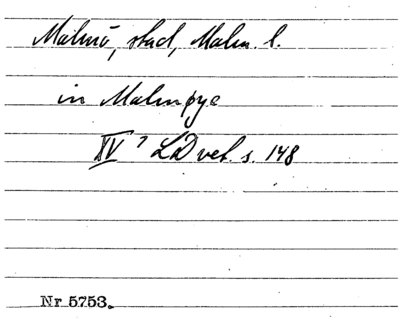 Malmö, stad, Malm. l.
in Malmøye
XV? LD vet. s. 148
Nr 5753.